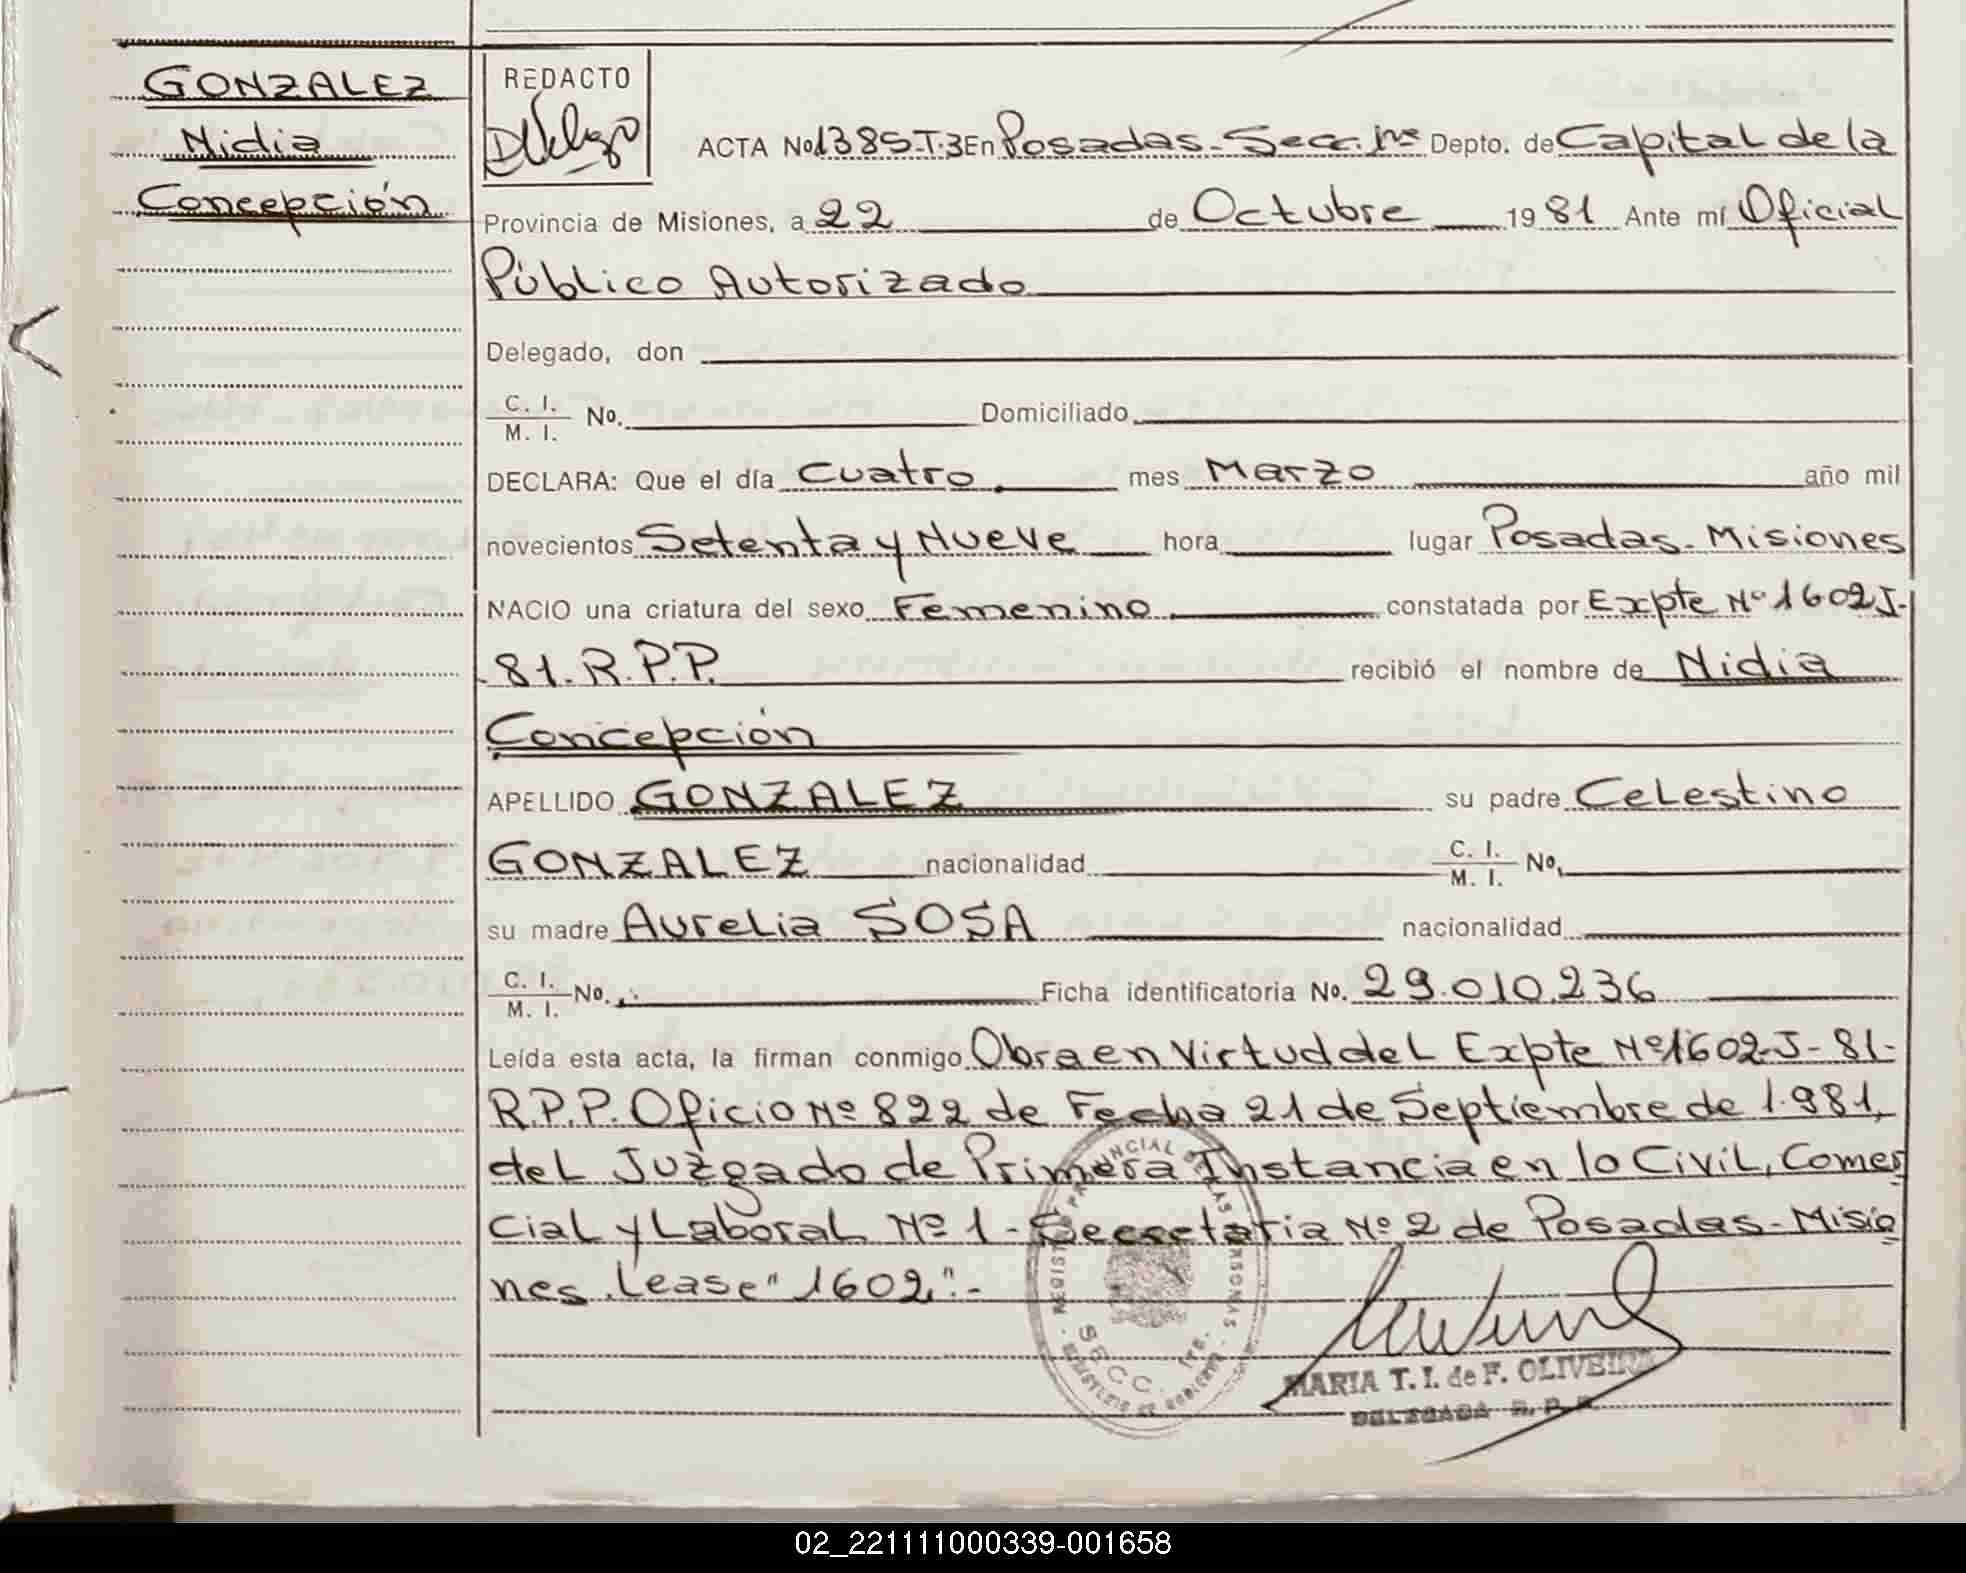 GONZALEZ
Nidia
Concepción
REDACTO
ACTA No. 1385-T.3 En Posadas - Secc. 1ra Depto. de Capital de la
Provincia de Misiones, a 22 de Octubre 1981 Ante mí Oficial
Público Autorizado
Delegado, don
C. I.
M. I. No. Domiciliado
DECLARA: Que el día Cuatro mes Marzo año mil
novecientos Setenta y Nueve hora lugar Posadas - Misiones
NACIO una criatura del sexo Femenino constatada por Expte Nº 1602 J-
81. R.P.P. recibió el nombre de Nidia
Concepción
APELLIDO GONZALEZ su padre Celestino
GONZALEZ nacionalidad C. I.
M. I. No.
su madre Aurelia SOSA nacionalidad
C. I.
M. I. No. Ficha identificatoria No. 29.010.236
Leída esta acta, la firman conmigo Obra en Virtud del Expte Nº 1602-J-81-
R.P.P. Oficio Nº 822 de Fecha 21 de Septiembre de 1.981,
del Juzgado de Primera Instancia en lo Civil, Comer
cial y Laboral Nº 1 - Secretaria Nº 2 de Posadas - Misio
nes. Lease "1602":-
REGISTRO PROVINCIAL DE LAS PERSONAS
SECC. 1ra.
MARIA T. I. de F. OLIVEIRA
DELEGADA R. P. P.
02_221111000339-001658